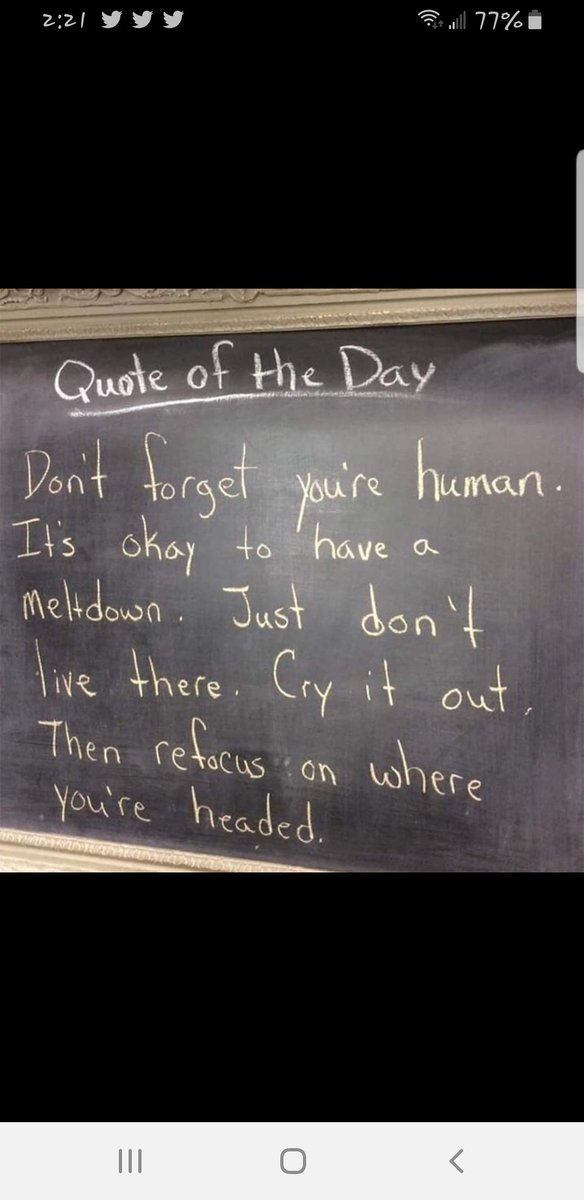 2:21 77%
Quote of the Day
Don't forget you're human.
It's okay to have a
meltdown. Just don't
live there. Cry it out.
Then refocus on where
you're headed.